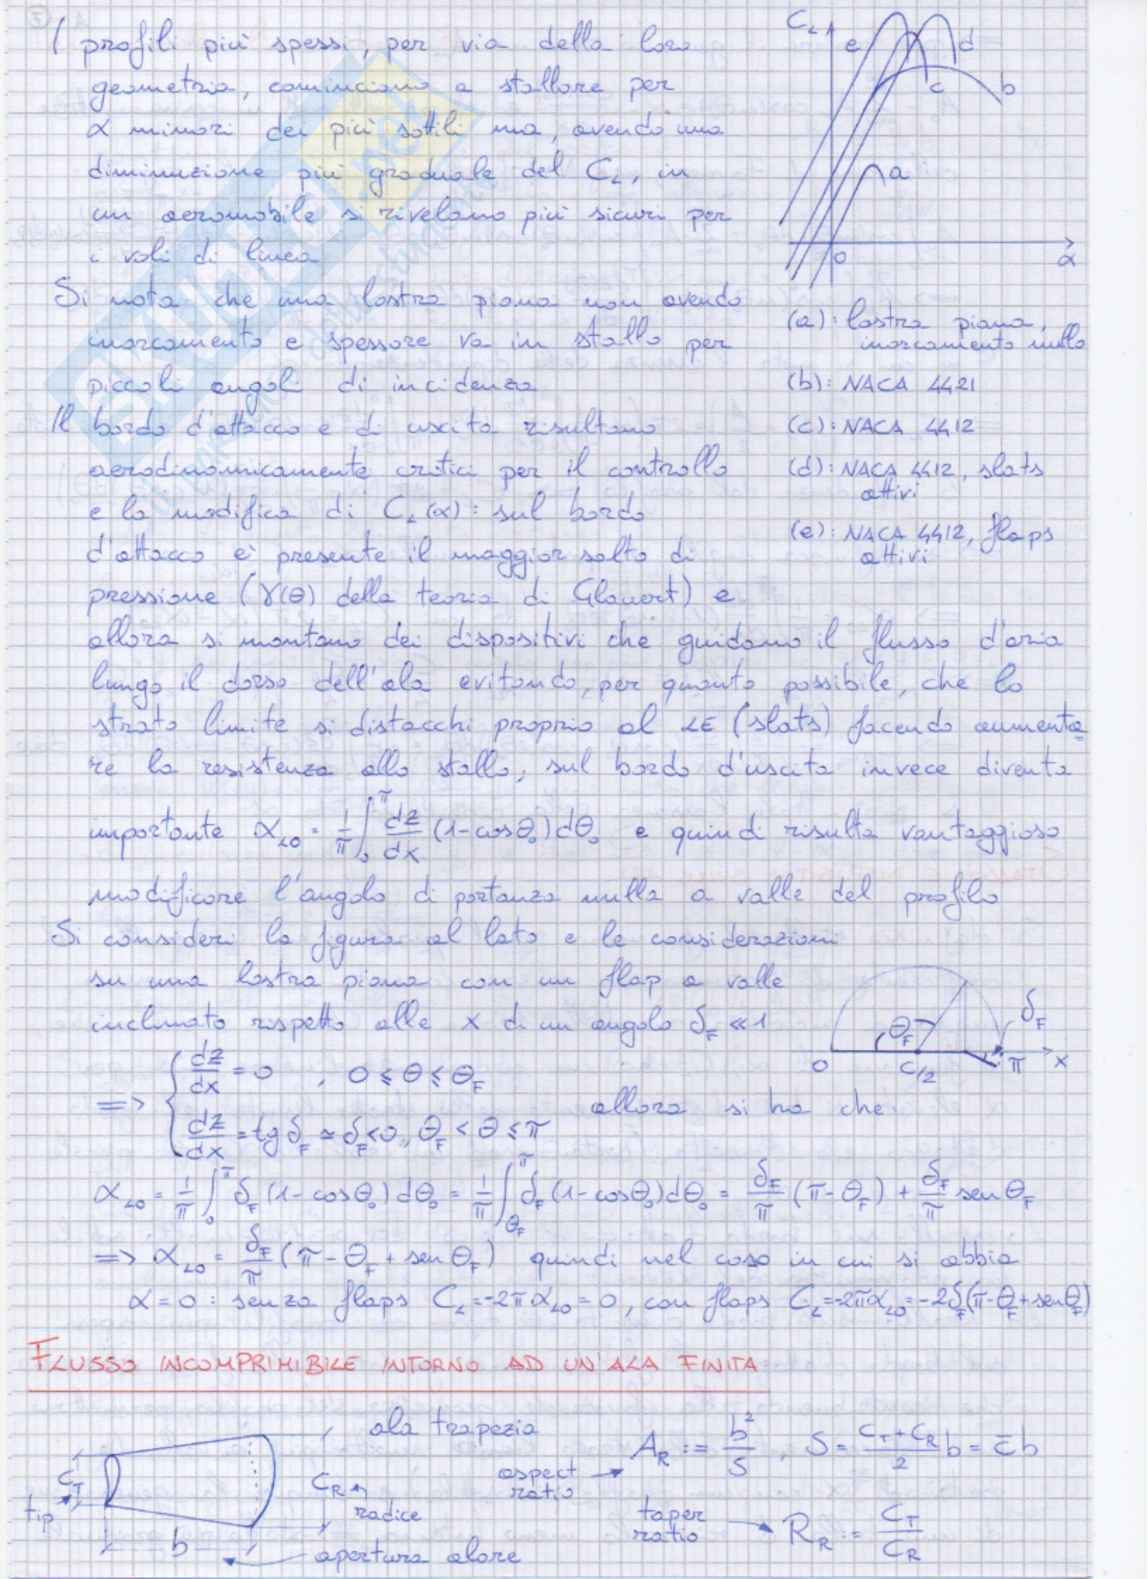 I profili più spessi, per via della loro
geometria, cominciano a stallare per
α minori dei più sottili ma, avendo una
diminuzione più graduale del C_L, in
un aeromobile si rivelano più sicuri per
i voli di linea
Si nota che una lastra piana non avendo
inarcamento e spessore va in stallo per
piccoli angoli di incidenza
Il bordo d'attacco e di uscita risultano
aerodinamicamente critici per il controllo
e la modifica di C_L(α): sul bordo
d'attacco è presente il maggior salto di
pressione (γ(θ) della teoria di Glauert) e
allora si montano dei dispositivi che guidano il flusso d'aria
lungo il dorso dell'ala evitando, per quanto possibile, che lo
strato limite si distacchi proprio al LE (slats) facendo aumenta=
re la resistenza allo stallo, sul bordo d'uscita invece diventa
importante α_L0 = 1/π ∫_0^π dz/dx (1-cosθ_0)dθ_0 e quindi risulta vantaggioso
modificare l'angolo di portanza nulla a valle del profilo
C_L
e
d
c
b
a
0
α
(a): lastra piana,
inarcamento nullo
(b): NACA 4421
(c): NACA 4412
(d): NACA 4412, slats
attivi
(e): NACA 4412, flaps
attivi
Si consideri la figura al lato e le considerazioni
su una lastra piana con un flap a valle
inclinato rispetto alle x di un angolo δ_F ≪ 1
θ_F
δ_F
0
C/2
π
x
=> { dz/dx = 0 , 0 ≤ θ ≤ θ_F
dz/dx = tg δ_F ≃ δ_F < 0, θ_F < θ ≤ π
allora si ha che:
α_L0 = 1/π ∫_0^π δ_F (1-cosθ_0)dθ_0 = 1/π ∫_θ_F^π δ_F (1-cosθ_0)dθ_0 = δ_F/π (π-θ_F) + δ_F/π senθ_F
=> α_L0 = δ_F/π (π-θ_F+senθ_F) quindi nel caso in cui si abbia
α=0: senza flaps C_L=-2πα_L0=0, con flaps C_L=-2πα_L0=-2δ_F(π-θ_F+senθ_F)
FLUSSO INCOMPRIMIBILE INTORNO AD UN'ALA FINITA
ala trapezia
C_T
tip
C_R
radice
b
apertura alare
A_R := b²/S , S = (C_T+C_R)/2 b = c̄b
aspect
ratio
taper
ratio
R_R := C_T/C_R